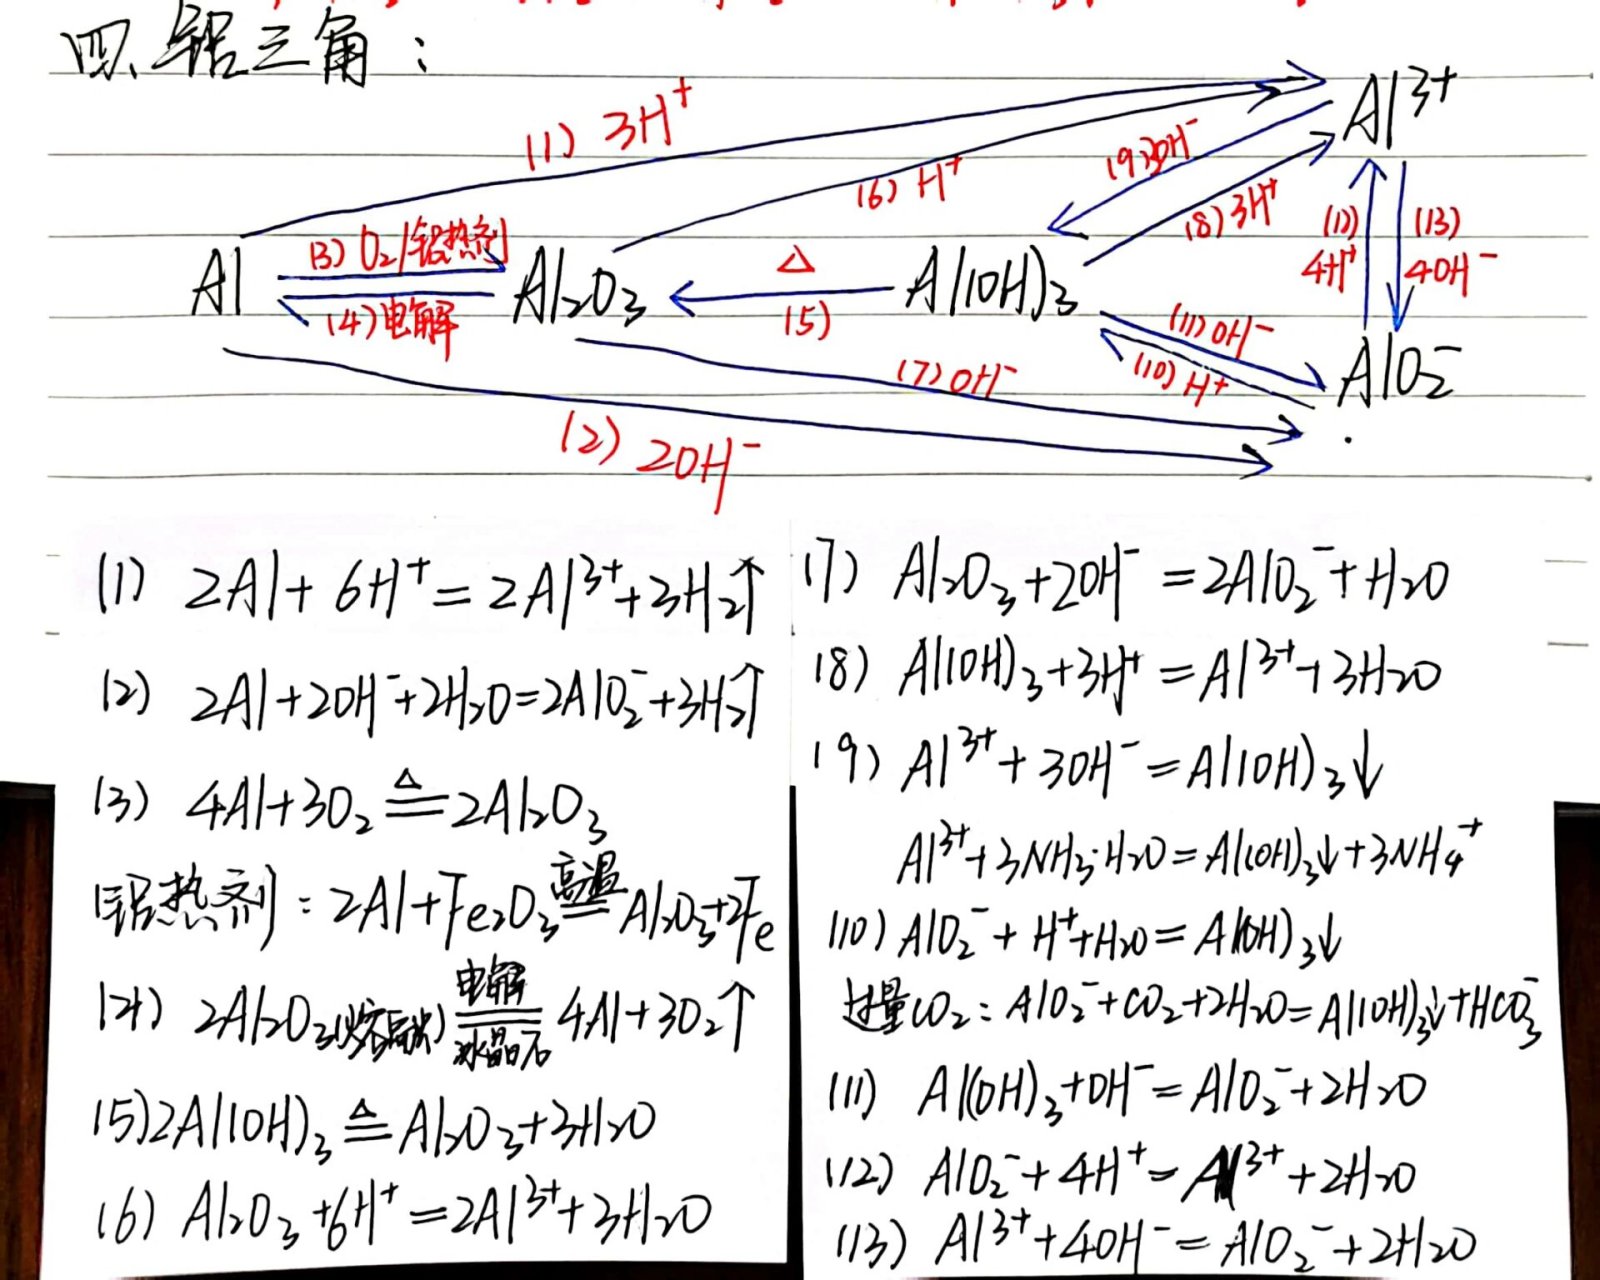 四、铝三角：
(1) 3H⁺
Al³⁺
(6) H⁺
(9) 3OH⁻
(8) 3H⁺
(12) 4H⁺
(13) 4OH⁻
Al
(3) O₂/铝热剂
(4) 电解
Al₂O₃
△
(5)
Al(OH)₃
(11) OH⁻
(10) H⁺
AlO₂⁻
(7) OH⁻
(2) 2OH⁻
(1) 2Al + 6H⁺ = 2Al³⁺ + 3H₂↑
(2) 2Al + 2OH⁻ + 2H₂O = 2AlO₂⁻ + 3H₂↑
(3) 4Al + 3O₂ =△= 2Al₂O₃
铝热剂：2Al + Fe₂O₃ =高温= Al₂O₃ + 2Fe
(4) 2Al₂O₃(熔融) =电解/冰晶石= 4Al + 3O₂↑
(5) 2Al(OH)₃ =△= Al₂O₃ + 3H₂O
(6) Al₂O₃ + 6H⁺ = 2Al³⁺ + 3H₂O
(7) Al₂O₃ + 2OH⁻ = 2AlO₂⁻ + H₂O
(8) Al(OH)₃ + 3H⁺ = Al³⁺ + 3H₂O
(9) Al³⁺ + 3OH⁻ = Al(OH)₃↓
Al³⁺ + 3NH₃·H₂O = Al(OH)₃↓ + 3NH₄⁺
(10) AlO₂⁻ + H⁺ + H₂O = Al(OH)₃↓
过量CO₂：AlO₂⁻ + CO₂ + 2H₂O = Al(OH)₃↓ + HCO₃⁻
(11) Al(OH)₃ + OH⁻ = AlO₂⁻ + 2H₂O
(12) AlO₂⁻ + 4H⁺ = Al³⁺ + 2H₂O
(13) Al³⁺ + 4OH⁻ = AlO₂⁻ + 2H₂O